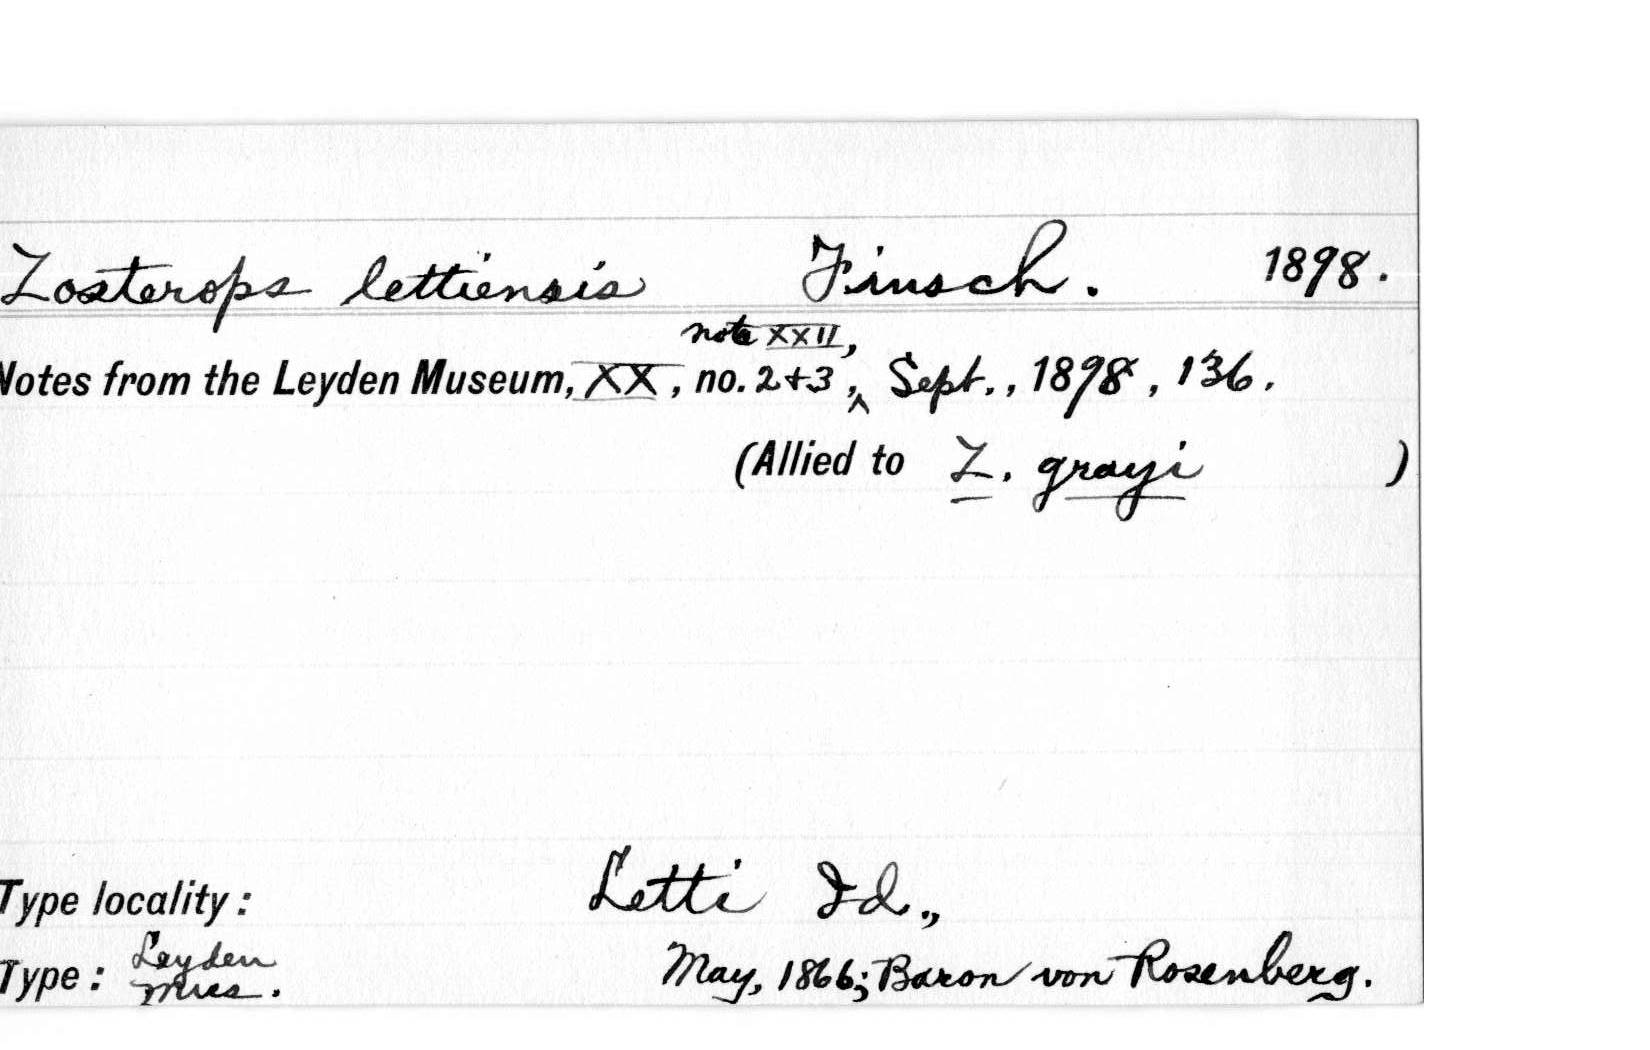 Zosterops lettiensis Finsch. 1898.
note XXII,
Notes from the Leyden Museum, XX, no. 2+3, Sept., 1898, 136.
(Allied to Z. grayi )
Type locality: Letti Id.,
Type: Leyden Mus. May, 1866; Baron von Rosenberg.